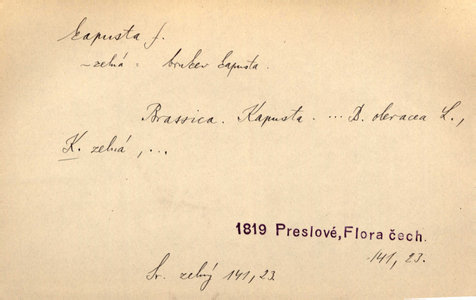 kapusta f.
- zelná = brukev kapusta.
Brassica. Kapusta. ... B. oleracea L.,
K. zelná, ...
1819 Preslové, Flora čech.
141, 23.
Sr. zelný 141, 23